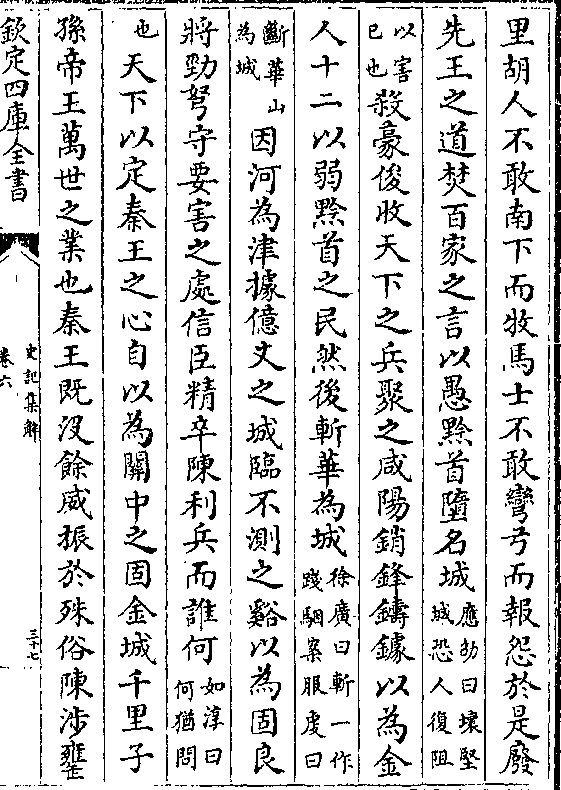 里胡人不敢南下而牧馬士不敢彎弓而報怨於是廢
先王之道焚百家之言以愚黔首墮名城應劭曰壞堅城恐人復阻
以害己也殺豪俊收天下之兵聚之咸陽銷鋒鑄鐻以為金
人十二以弱黔首之民然後斬華為城徐廣曰斬一作踐駰案服虔曰
斷華山為城因河為津據億丈之城臨不測之谿以為固良
將勁弩守要害之處信臣精卒陳利兵而誰何如淳曰何猶問
也天下以定秦王之心自以為關中之固金城千里子
孫帝王萬世之業也秦王既沒餘威振於殊俗陳涉甕
欽定四庫全書
史記集解
卷六
三十七